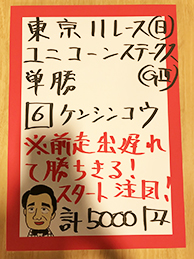 東京11レース(日)
ユニコーンステークス
単勝 (GⅢ)
6 ケンシンコウ
※前走出遅れ
て勝ちきる!
スタート注目!
計5000円